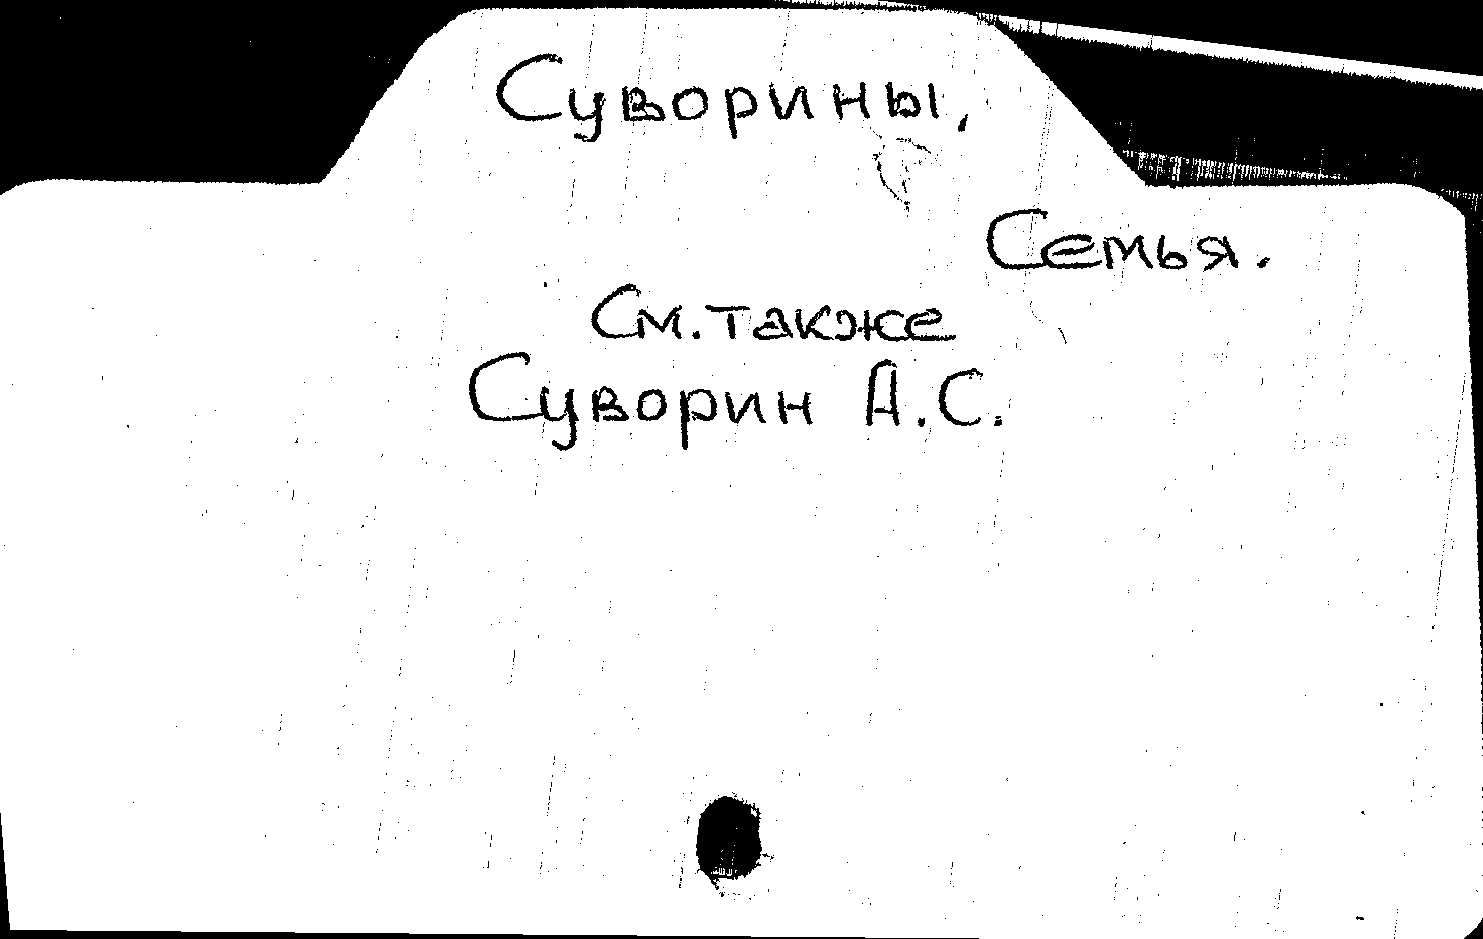 Суворины,
Семья.
См. также
Суворин А.С.